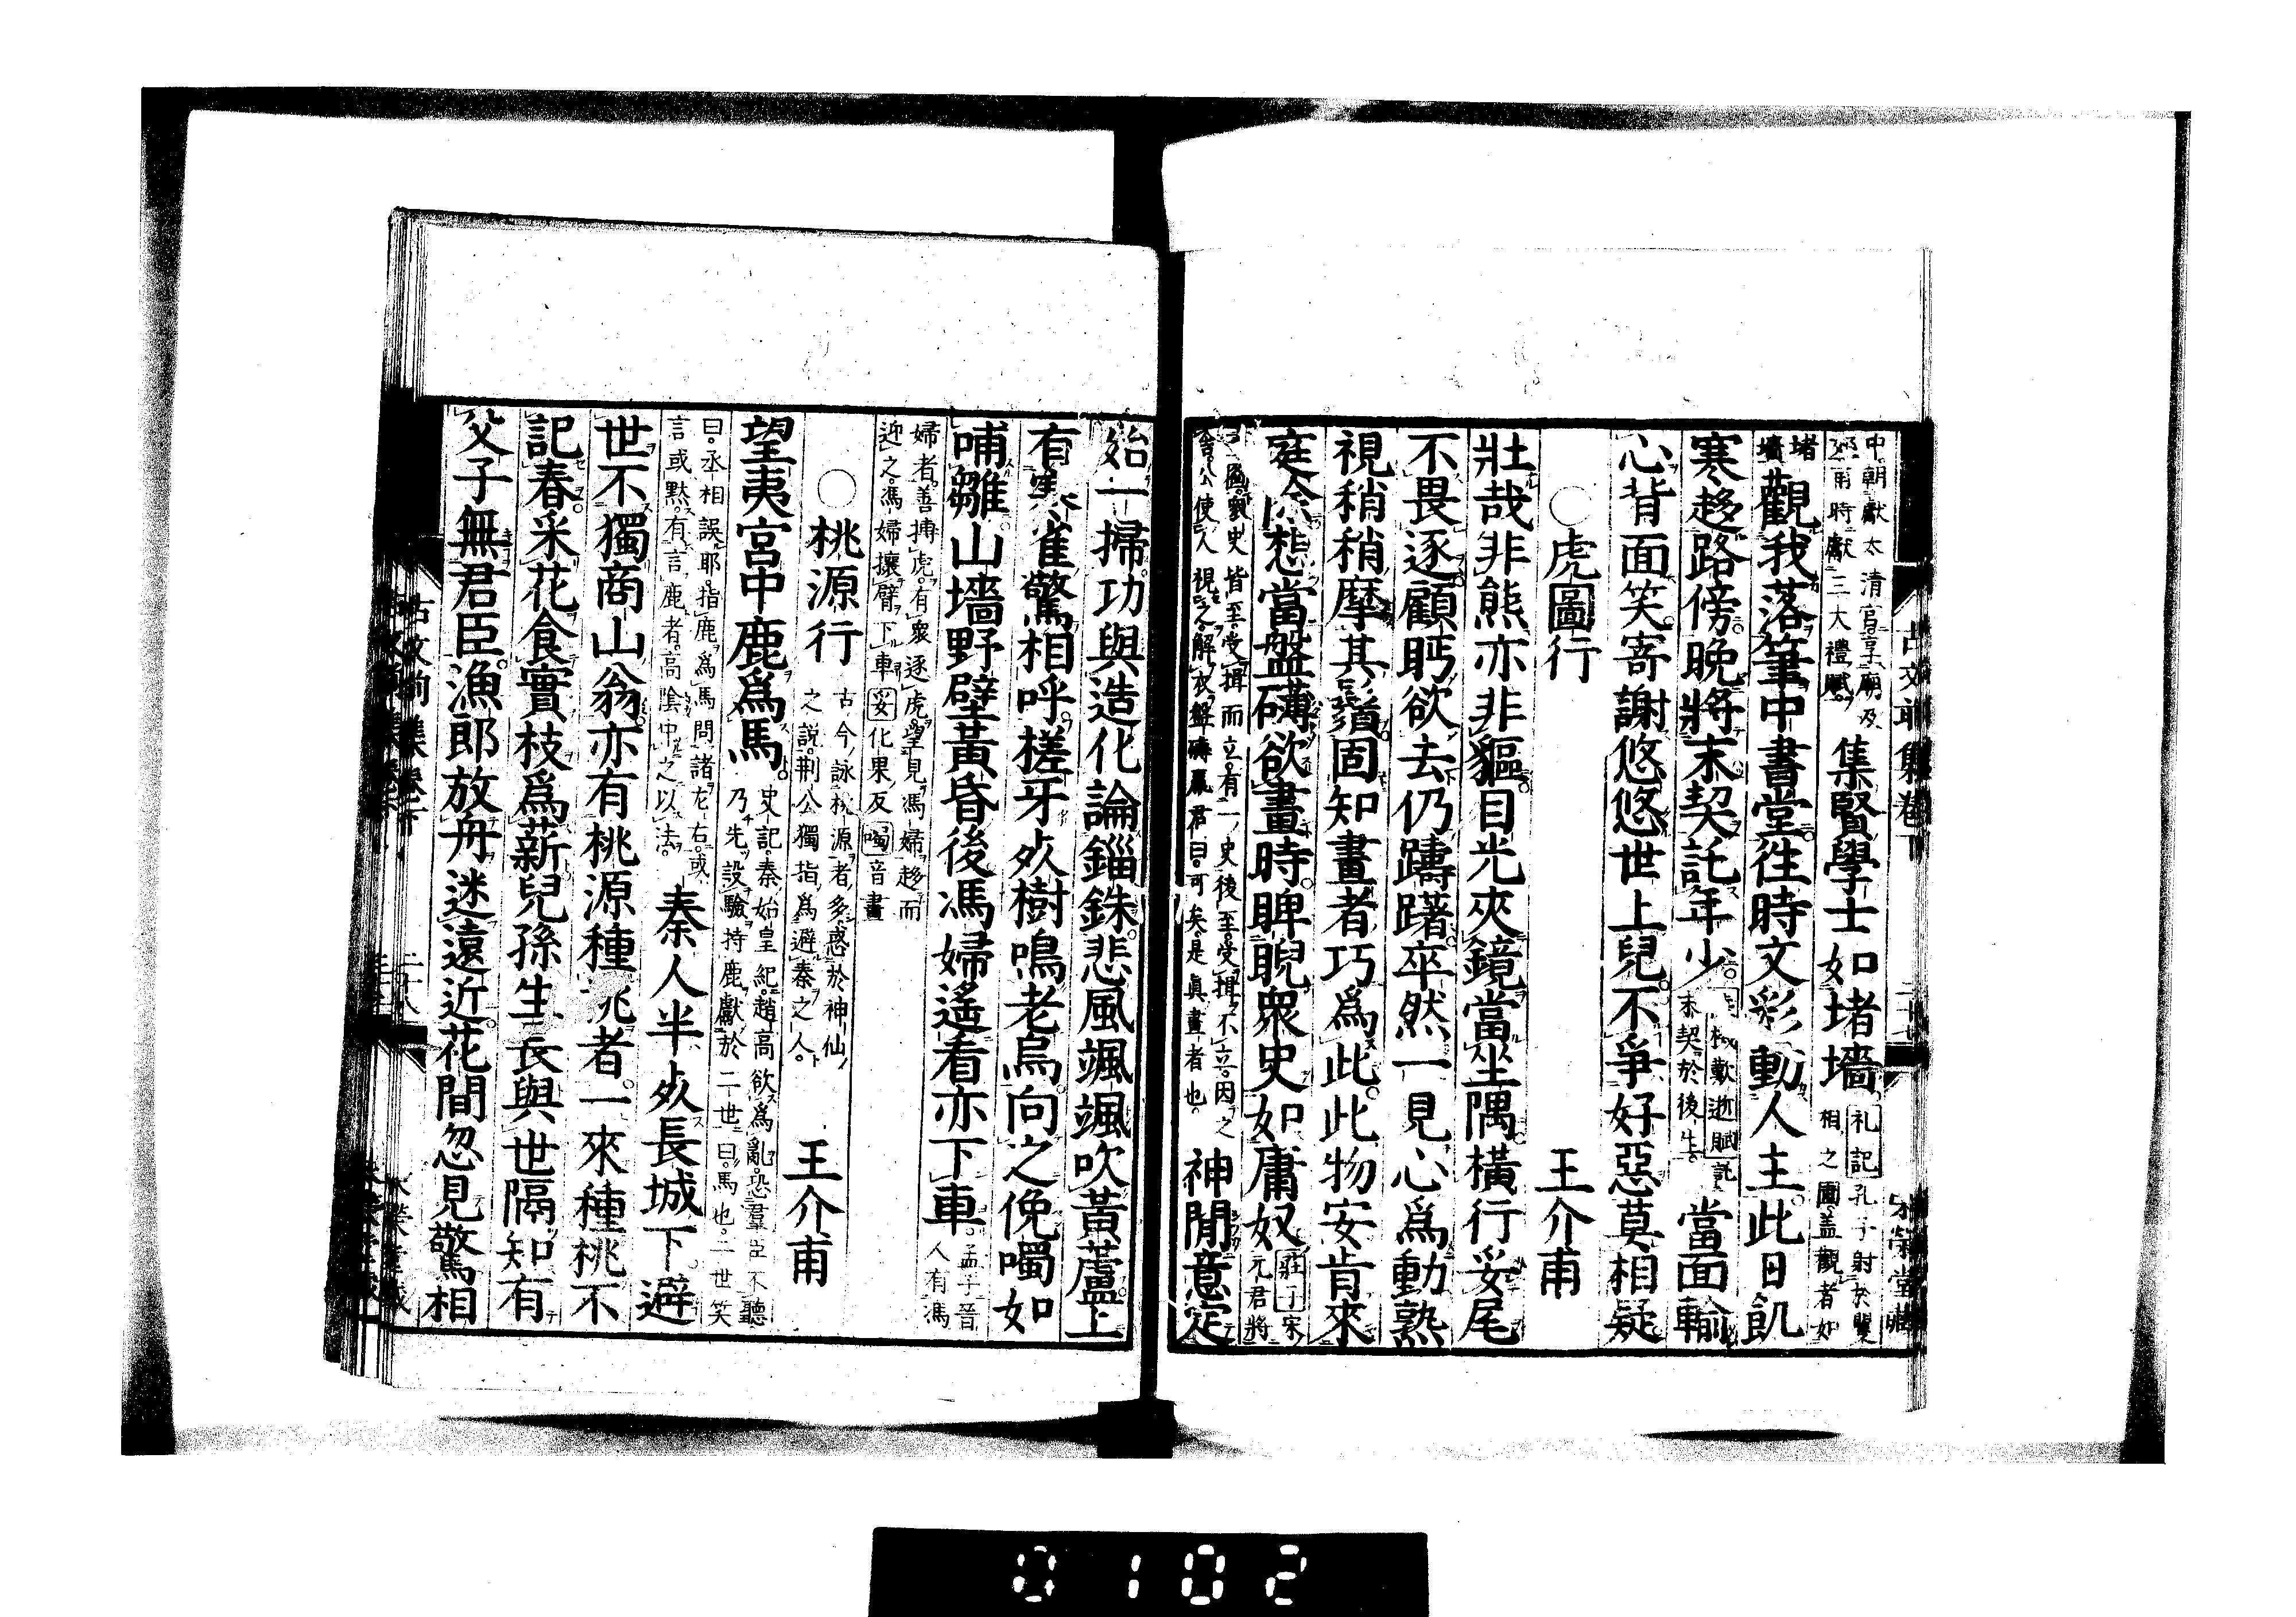 中朝獻太清宮享廟及
時獻三大禮賦
集賢學士如堵墻
礼記孔子射於矍
相之圃蓋觀者如
堵
墻
觀我落筆中書堂往時文彩動人主此日飢
寒趍路傍晚將末契託年少
歎逝賦託
末契於後生
當面輸
心背面笑寄謝悠悠世上兒不爭好惡莫相疑
○虎圖行 王介甫
壯哉非熊亦非貙目光夾鏡當坐隅橫行妥尾
不畏逐顧眄欲去仍躊躇卒然一見心爲動熟
視稍稍摩其鬚固知畫者巧爲此此物安肯來
庭除想當盤礴欲畫時睥睨衆史如庸奴
莊子宋
元君將
圖衆史皆至受揖而立有一史後至受揖不立因之
舍公使人視之解衣盤礴臝君曰可矣是眞畫者也
神閒意定
始一掃功與造化論錙銖悲風颯颯吹黃蘆上
有寒雀驚相呼槎牙死樹鳴老烏向之俛噣如
哺雛山墻野壁黃昏後馮婦遙看亦下車
孟子晉
人有馮
婦者善搏虎有衆逐虎望見馮婦趍而
迎之馮婦攘臂下車妥化果反噣音晝
○桃源行
古今詠桃源者多惑於神仙
之説荆公獨指爲避秦之人
王介甫
望夷宮中鹿爲馬
史記秦始皇紀趙高欲爲亂恐羣臣不聽
乃先設驗持鹿獻於二世曰馬也二世笑
曰丞相誤耶指鹿爲馬問諸左右或
言或默有言鹿者高陰中之以法
秦人半死長城下避
世不獨商山翁亦有桃源種桃者一來種桃不
記春采花食實枝爲薪兒孫生長與世隔知有
父子無君臣漁郎放舟迷遠近花間忽見驚相
古文前集卷下
0102